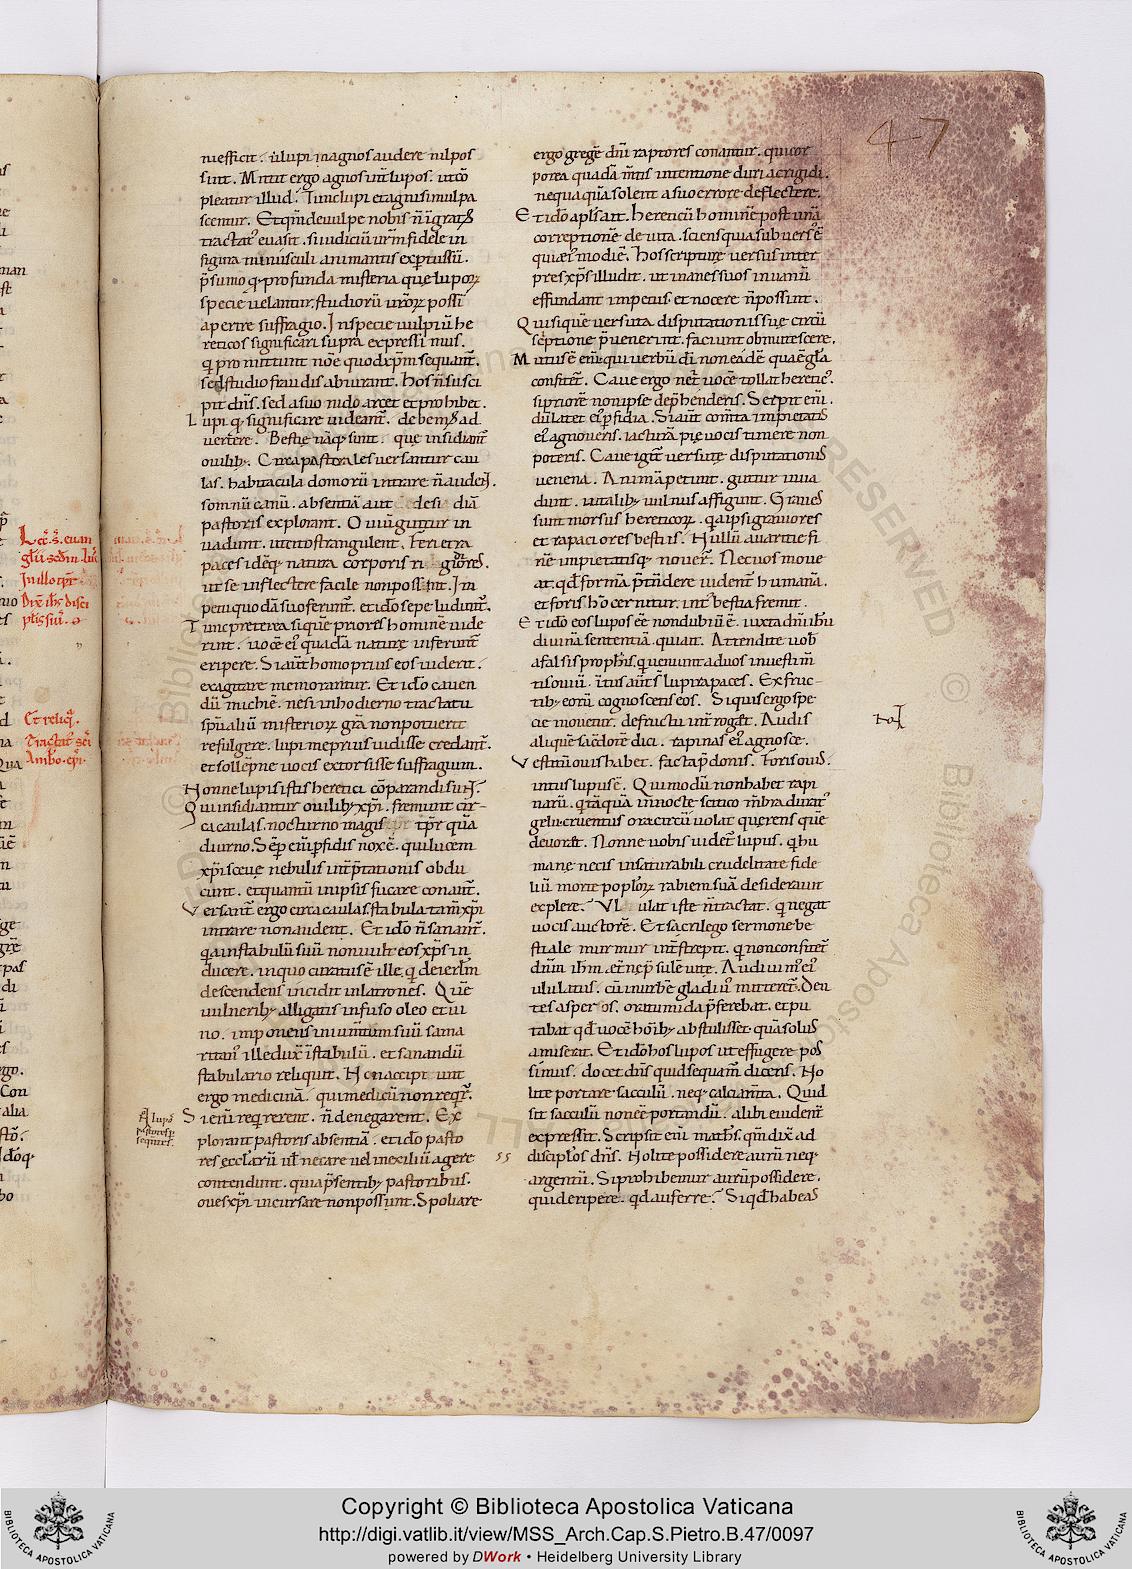 47
niefficit. ut lupi in agnos audere nil pos
sunt. Mittit ergo agnos int̃ lupos. ut cō
pleatur illud. Tunc lupi et agni simul pa
scentur. Et qm̃ de vulpe nobis ñ īgratꝰ
tractatꝰ evasit. si iudiciū vrm̃ fidele in
figura minusculi animantis expertus sū.
p̃sumo qꝫ profunda misteria que lupoꝝ
specie velantur. studiorū vr̃oꝝ possē
aperire suffragio. In specie vulpiū he
reticos significari supra expressimus.
q̇ promittunt noīe quod xp̄m sequant̃.
sed studio fraudis abiurant. Hos ñ susci
pit dñs. sed a suo nido arcet et prohibet.
Lupi q̇ significare videant̃. debemꝰ ad
vertere. Bestie nāqꝫ sunt. que insidiant̃
ovilibꝫ. Circa pastorales versantur cau
las. habitacula domorū intrare ñ audent.
somnū canū. absentiā aut desidiā
pastoris explorant. Oviū guttur in
vadunt. ut cito strangulent. Feri et ra
paces idēqꝫ natura corporis rigidiores.
ut se inflectere facile non possint. Im
petu quodā suo ferunt̃. et ido sepe ludunt̃.
Tunc preterea si quē priores hominē vide
rint. vocē eiꝰ quadā nature inferunt̃
eripere. Si aut̃ homo prius eos viderit.
exagitare memorantur. Et ido caven
dū michi ē. ne si in hodierno tractatu
spūaliū misterioꝝ gr̃a non potuerit
refulgere. lupi me prius vidisse credant̃.
et sollēpne vocis extorsisse suffragium.
Nonne lupis istis heretici cōparandi sunt.
Qui insidiantur ovilibꝫ xp̄i. fremunt cir-
ca caulas. nocturno magis tp̃r quā
diurno. Sēp eni p̃fidis nox ē. qui lucem
xp̄i sceve nebulis int̃p̃tationis obdu
cunt. et quantū in ipsis fucare conant̃.
Versant̃ ergo circa caulas. stabula tam̃ xp̄i
intrare non audent. Et ido ñ sanant̃.
qa in stabulū suū non vult eos xp̄s in
ducere. in quo curatus ē ille. q̇ de ierl̃m
descendens incidit in latrones. Quē
vulneribꝫ alligatis infuso oleo et vi
no. imponens in iumtum suū sama
ritanꝰ ille dux̃ ī stabulū. et sanandū
stabulario reliquit. Hi non accipiunt
ergo medicinā. qui medicū non reqr̃t.
Si eni req̇rerent. ñ denegarent. Ex
plorant pastoris absentiā. et ido pasto
res eccl̃arū ul̃ necare vel in exiliū agere
contendunt. quia p̃sentibꝫ pastoribus.
oves xp̄i incursare non possunt. Spoliare
ergo gregē dni raptores conantur. qui cor
porea quadā m̃tis intentione duri ac rigidi.
nequaquā solent a suo errore deflectere.
Et ido apl̃s ait. hereticū hominē post unā
correptionē devita. sciens quia subvers ē
qui eiꝰmodi ē. Hos scripture versus inter
pres xp̄s illudit. ut inanes suos in vanū
effundant impetus. et nocere ñ possint.
Qui si quē versuta disputationis sue circū
scriptione p̃venerint. faciunt obmutescere.
Mutus ē eni. qui verbū dī non eādē qua ē gl̃a
confitet̃. Cave ergo ne t̃ vocē tollat hereticꝰ.
si priorē non ipse dep̃henderis. Serpit eni.
dū latet eiꝰ p̃fidia. Si aut̃ com̃ta impietatis
eiꝰ agnoveris. iacturā pie vocis timere non
poteris. Cave igit̃ versute disputationis
venena. Animā petunt. guttur inva
dunt. vitalibꝫ vulnus affigunt. Graves
sunt morsus hereticoꝝ. q̇ a ipsi graviores
et rapaciores bestiis. Nullū avaritie fi
nē impietatisqꝫ noverit. Nec vos move
at. qd̃ formā p̃tendere videnť humanā.
et foris hō cernitur. int̃ bestia fremit.
Et ido eos lupos eē non dubiū ē. iuxta dni ihū
divinā sententiā. qui ait. Attendite vob̃
a falsis proph̃is. q̇ veniunt ad vos in vestim̃
tis oviū. īt̃us aut̃ s̃ lupi rapaces. Ex fruc-
tibꝫ eorū cognoscetis eos. Si quis ergo spe
cie movetur. de fructu int̃roget. Audis
aliquē sac̃dotē dici. rapinas eiꝰ agnosce.
Vestitū ovis habet. facta p̃donis. Foris ovis.
intus lupus ē. Qui modū non habet rapi
narū. q̇ tāquā in nocte scitico m̃bra duratꝰ
gelu. cruentus ora circū volat querens quē
devoret. Nonne vobis videt̃ lupus. q̇ hu
mane necis insaturabili crudelitate fide
liū morte popl̃oꝝ rabiem suā desideravit
explere. Ululat iste ñ tractat. q̇ negat
vocis auctorē. Et sacrilego sermone be
stiale murmur int̃strepit. q̇ non confitet̃
dnm ihm̃. et̃ne p̃sulē vite. Audivim̃ eiꝰ
ululatus. cū in orbē gladiꝰ mitteret̃. Den
tes asperos. ora tumida p̃ferebat. et pu
tabat qd̃ vocē hōibꝫ abstulisset. quā solus
amiserat. Et ido hos lupos ut effugere pos
simus. docet dñs quid sequam̃ dicens. No
lite portare sacculū. neqꝫ calciam̃ta. Quid
sit sacculū non eē portandū. alibi evident̃
expressit. Scripsit eni math̃s. qm̃ dix̃ ad
discipl̃os dñs. Nolite possidere aurū neqꝫ
argentū. Si prohibemur aurū possidere.
quid eripere. qd̃ auferre. Si qd̃ habeas
Lec̃. s̃. euan
gl̃ii scdm̃ luc̃
In illo tp̃r
Dix̃ ih̃s disci
pl̃is suis.
Et reliq̃.
Tractat̃ sc̃i
Ambo. ep̃i.
Copyright © Biblioteca Apostolica Vaticana
http://digi.vatlib.it/view/MSS_Arch.Cap.S.Pietro.B.47/0097
powered by DWork • Heidelberg University Library
BIBLIOTECA APOSTOLICA VATICANA
BIBLIOTECA APOSTOLICA VATICANA